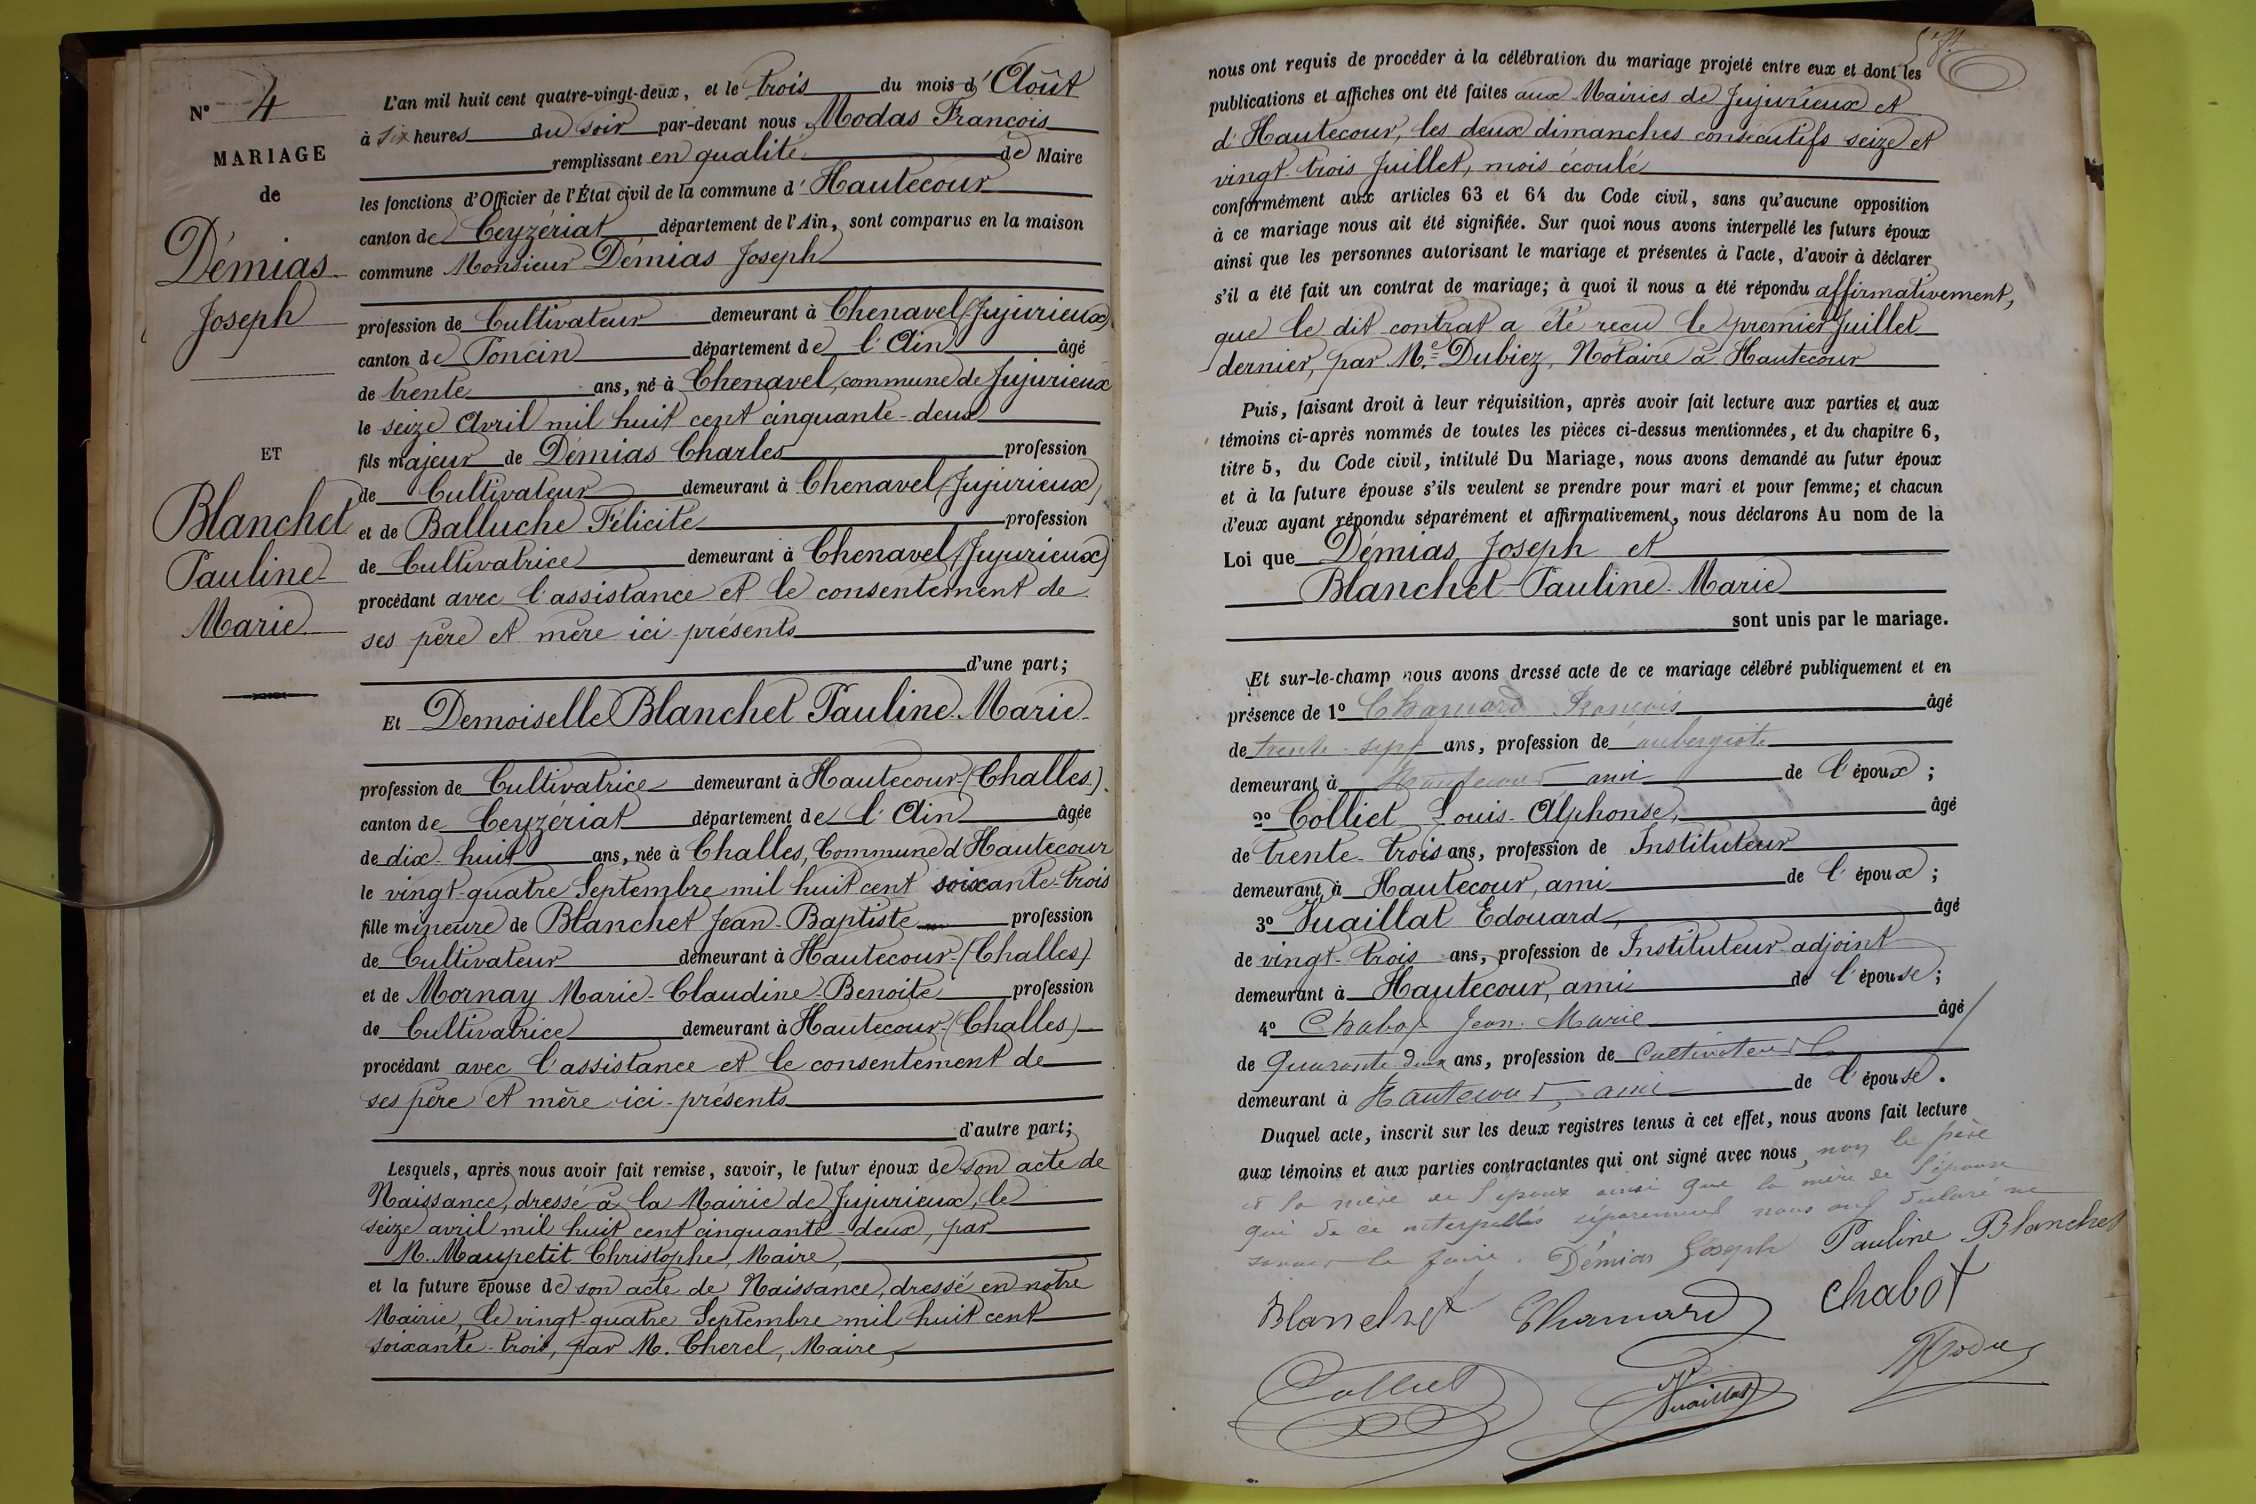 N° 4
MARIAGE
de
Démias
Joseph
ET
Blanchet
Pauline
Marie
L'an mil huit cent quatre-vingt-deux, et le trois du mois d'Août
à six heures du soir par-devant nous Modas François
remplissant en qualité de Maire
les fonctions d'Officier de l'État civil de la commune d'Hautecour
canton de Ceyzériat département de l'Ain, sont comparus en la maison
commune Monsieur Démias Joseph
profession de Cultivateur demeurant à Chenavel (Jujurieux)
canton de Poncin département de l'Ain âgé
de trente ans, né à Chenavel, commune de Jujurieux
le seize Avril mil huit cent cinquante-deux
fils majeur de Démias Charles profession
de Cultivateur demeurant à Chenavel (Jujurieux)
et de Balluche Félicité profession
de Cultivatrice demeurant à Chenavel (Jujurieux)
procédant avec l'assistance et le consentement de
ses père et mère ici présents
d'une part;
Et Demoiselle Blanchet Pauline Marie
profession de Cultivatrice demeurant à Hautecour (Challes)
canton de Ceyzériat département de l'Ain âgée
de dix-huit ans, née à Challes, Commune d'Hautecour
le vingt-quatre Septembre mil huit cent soixante-trois
fille mineure de Blanchet Jean-Baptiste profession
de Cultivateur demeurant à Hautecour (Challes)
et de Mornay Marie-Claudine-Benoite profession
de Cultivatrice demeurant à Hautecour (Challes)
procédant avec l'assistance et le consentement de
ses père et mère ici présents
d'autre part;
Lesquels, après nous avoir fait remise, savoir, le futur époux de son acte de
Naissance, dressé à la Mairie de Jujurieux, le
seize avril mil huit cent cinquante-deux, par
M. Maupetit Christophe, Maire,
et la future épouse de son acte de Naissance, dressé en notre
Mairie, le vingt-quatre Septembre mil huit cent
soixante-trois, par M. Cherel, Maire,
nous ont requis de procéder à la célébration du mariage projeté entre eux et dont les
publications et affiches ont été faites aux Mairies de Jujurieux et
d'Hautecour, les deux dimanches consécutifs seize et
vingt-trois Juillet, mois écoulé
conformément aux articles 63 et 64 du Code civil, sans qu'aucune opposition
à ce mariage nous ait été signifiée. Sur quoi nous avons interpellé les futurs époux
ainsi que les personnes autorisant le mariage et présentes à l'acte, d'avoir à déclarer
s'il a été fait un contrat de mariage; à quoi il nous a été répondu affirmativement,
que le dit contrat a été reçu le premier Juillet
dernier, par Me Dubiez, Notaire à Hautecour
Puis, faisant droit à leur réquisition, après avoir fait lecture aux parties et aux
témoins ci-après nommés de toutes les pièces ci-dessus mentionnées, et du chapitre 6,
titre 5, du Code civil, intitulé Du Mariage, nous avons demandé au futur époux
et à la future épouse s'ils veulent se prendre pour mari et pour femme; et chacun
d'eux ayant répondu séparément et affirmativement, nous déclarons Au nom de la
Loi que Démias Joseph et
Blanchet Pauline Marie
sont unis par le mariage.
Et sur-le-champ nous avons dressé acte de ce mariage célébré publiquement et en
présence de 1° Chamard François âgé
de trente-sept ans, profession de aubergiste
demeurant à Hautecour ami de l'époux;
2° Colliet Louis-Alphonse, âgé
de trente-trois ans, profession de Instituteur
demeurant à Hautecour, ami de l'époux;
3° Vuaillat Edouard, âgé
de vingt-trois ans, profession de Instituteur adjoint
demeurant à Hautecour, ami de l'épouse;
4° Chabot Jean-Marie âgé
de quarante deux ans, profession de cultivateur
demeurant à Hautecour, ami de l'épouse.
Duquel acte, inscrit sur les deux registres tenus à cet effet, nous avons fait lecture
aux témoins et aux parties contractantes qui ont signé avec nous, non le père
et la mère de l'époux ainsi que la mère de l'épouse
qui de ce interpellés séparément nous ont déclaré ne
savoir le faire. Démias Joseph Pauline Blanchet
Blanchet Chamard Chabot
Colliet Vuaillat Modas